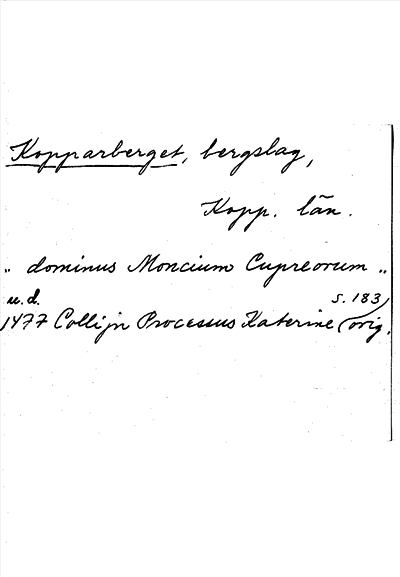 Kopparberget, bergslag,
Kopp. län.
" dominus Moncium Cupreorum "
u.d. s. 183
1477 Collijn Processus Katerine (orig.